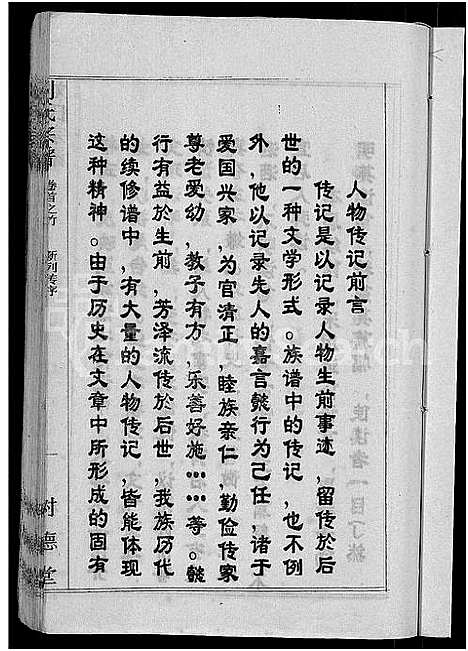 人物传记前言
传记是以记录人物生前事迹，留传於后
世的一种文学形式。族谱中的传记，也不例
外，他以记录先人的嘉言懿行为己任，诸于
爱国兴家，为官清正，睦族亲仁，勤俭传家
尊老爱幼，教子有方，乐善好施……等。懿
行有益於生前，芳泽流传於后世，我族历代
的续修谱中，有大量的人物传记，皆能体现
这种精神。由于历史在文章中所形成的固有
卷首之